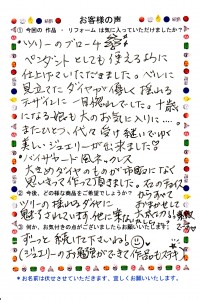 お客様の声
① 今回の 作品 ・ リフォーム は気に入っていただけましたか?
ツリーのブローチ
ペンダントとしても使える様に
仕上げていただきました。ベルに
見立てたダイヤが優しく揺れる
デザインに一目惚れでした。十歳に
なる娘も大のお気に入りに…。
またひとつ、代々受け継いでゆく
美しいジュエリーが出来ました。
バイザヤード風ネックレス
大きめダイヤのものが中心になく
思いきって作って頂きました。石のチョイス
② 今後、どの様な商品をご希望でしょうか?
ツリーの揺れるダイヤに
魅了されています。他に
おまかせして
大成功!
③ 何か、お気付きの点がございましたらお願いいたします。
ずーっと続けて下さいね
(ジュエリーのお勉強ができて作品もステキ
* お名前は伏せさせていただきます。宜しくお願いいたします。